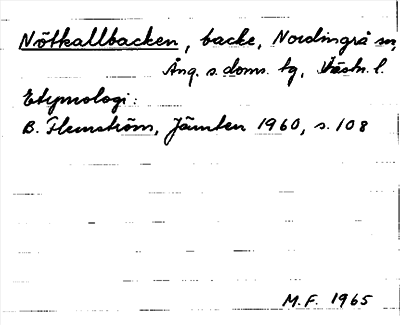 Nötkallbacken, backe, Nordingrå sn,
Ång. s. doms. tg, Västn. l.
Etymologi:
B. Flemström, Jämten 1960, s. 108
M.F. 1965